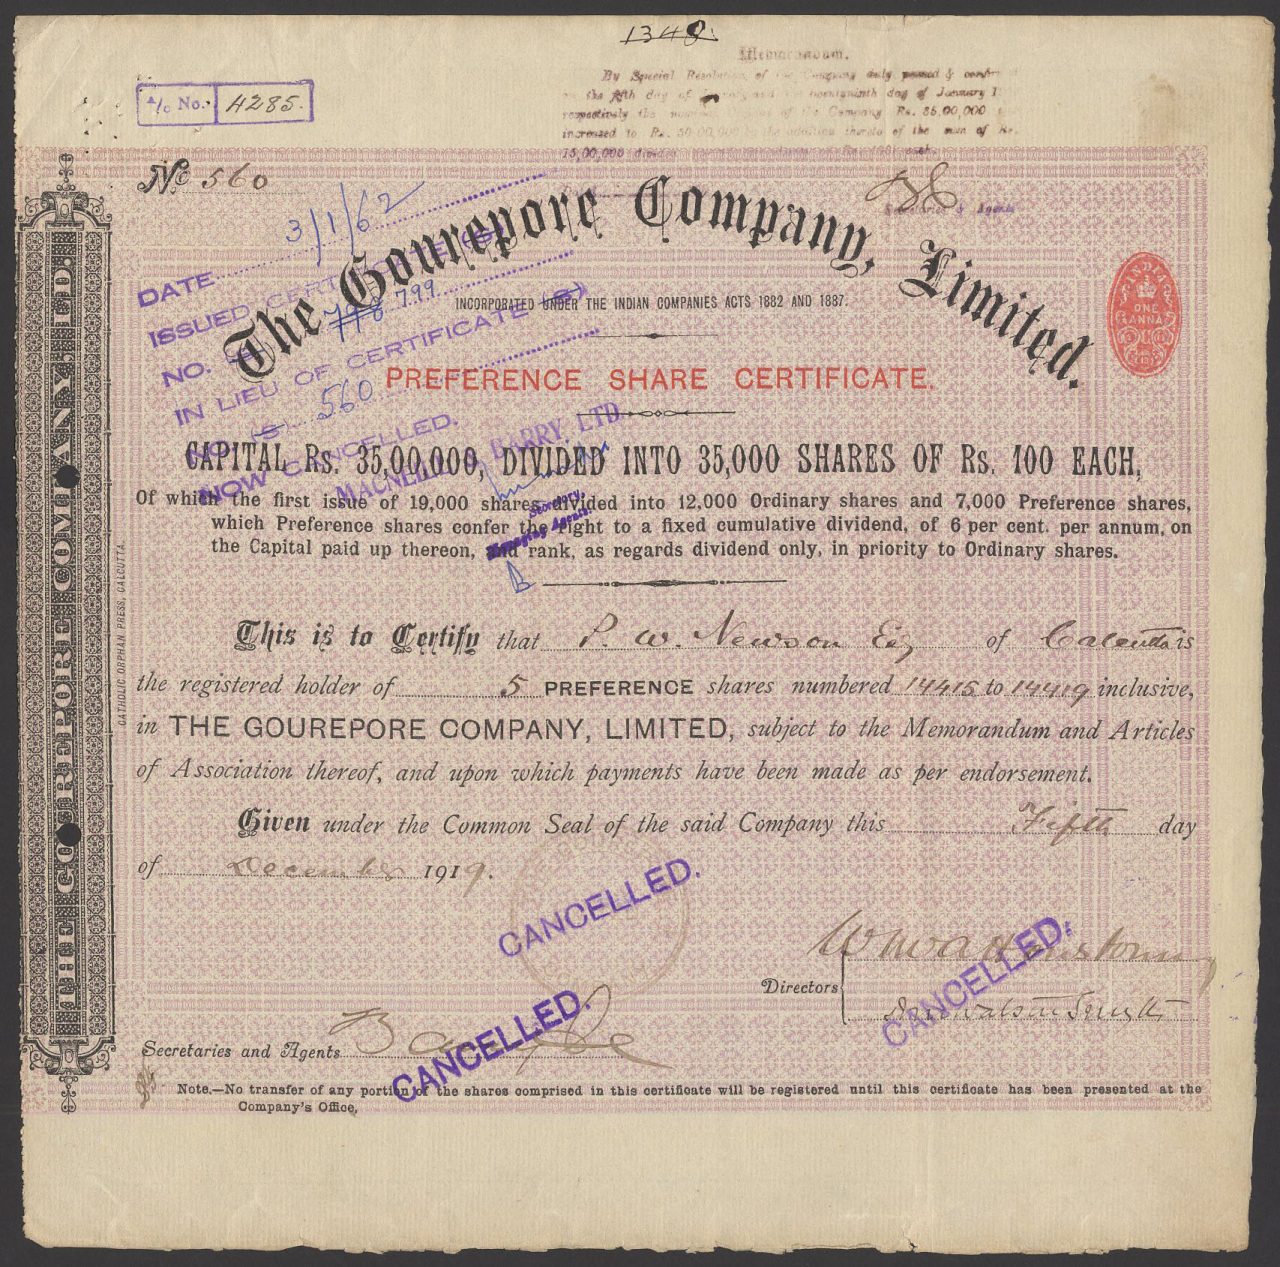 1348.
Memorandum.
By Special Resolution of the Company duly passed &
on the fifth day of and the twentyninth day of January
respectively the of the Company Rs. 35,00,000
increased to Rs. 50,00,000 by the addition thereto of the sum of Rs.
15,00,000 divided each.
A/c No. 4285.
No 560
Secretaries & Agents
DATE 3/1/62
ISSUED CERTIFICATE (S)
NO. (S) 798 799
IN LIEU OF CERTIFICATE (S)
NO. (S) 560
NOW CANCELLED.
MACNEILL & BARRY. LTD.
Secretary.
Managing Agents.
The Gourepore Company, Limited.
INCORPORATED UNDER THE INDIAN COMPANIES ACTS 1882 AND 1887.
INDIA
ONE
ANNA
PREFERENCE SHARE CERTIFICATE.
CAPITAL Rs. 35,00,000, DIVIDED INTO 35,000 SHARES OF Rs. 100 EACH,
Of which the first issue of 19,000 shares divided into 12,000 Ordinary shares and 7,000 Preference shares,
which Preference shares confer the right to a fixed cumulative dividend, of 6 per cent. per annum, on
the Capital paid up thereon, and rank, as regards dividend only, in priority to Ordinary shares.
This is to Certify that P. W. Newson Esq of Calcutta is
the registered holder of 5 PREFERENCE shares numbered 14415 to 14419 inclusive,
in THE GOUREPORE COMPANY, LIMITED, subject to the Memorandum and Articles
of Association thereof, and upon which payments have been made as per endorsement.
Given under the Common Seal of the said Company this Fifth day
of December 1919.
CANCELLED.
CANCELLED.
Directors
CANCELLED.
Secretaries and Agents
Note.—No transfer of any portion of the shares comprised in this certificate will be registered until this certificate has been presented at the
Company's Office.
THE GOUREPORE COMPANY, LTD.
CATHOLIC ORPHAN PRESS, CALCUTTA.